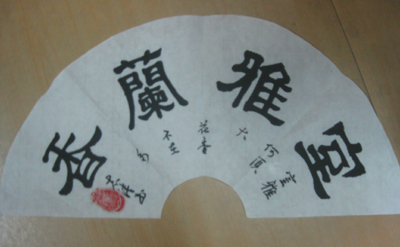 室雅蘭香
室雅
何須
大
花香
不在
多